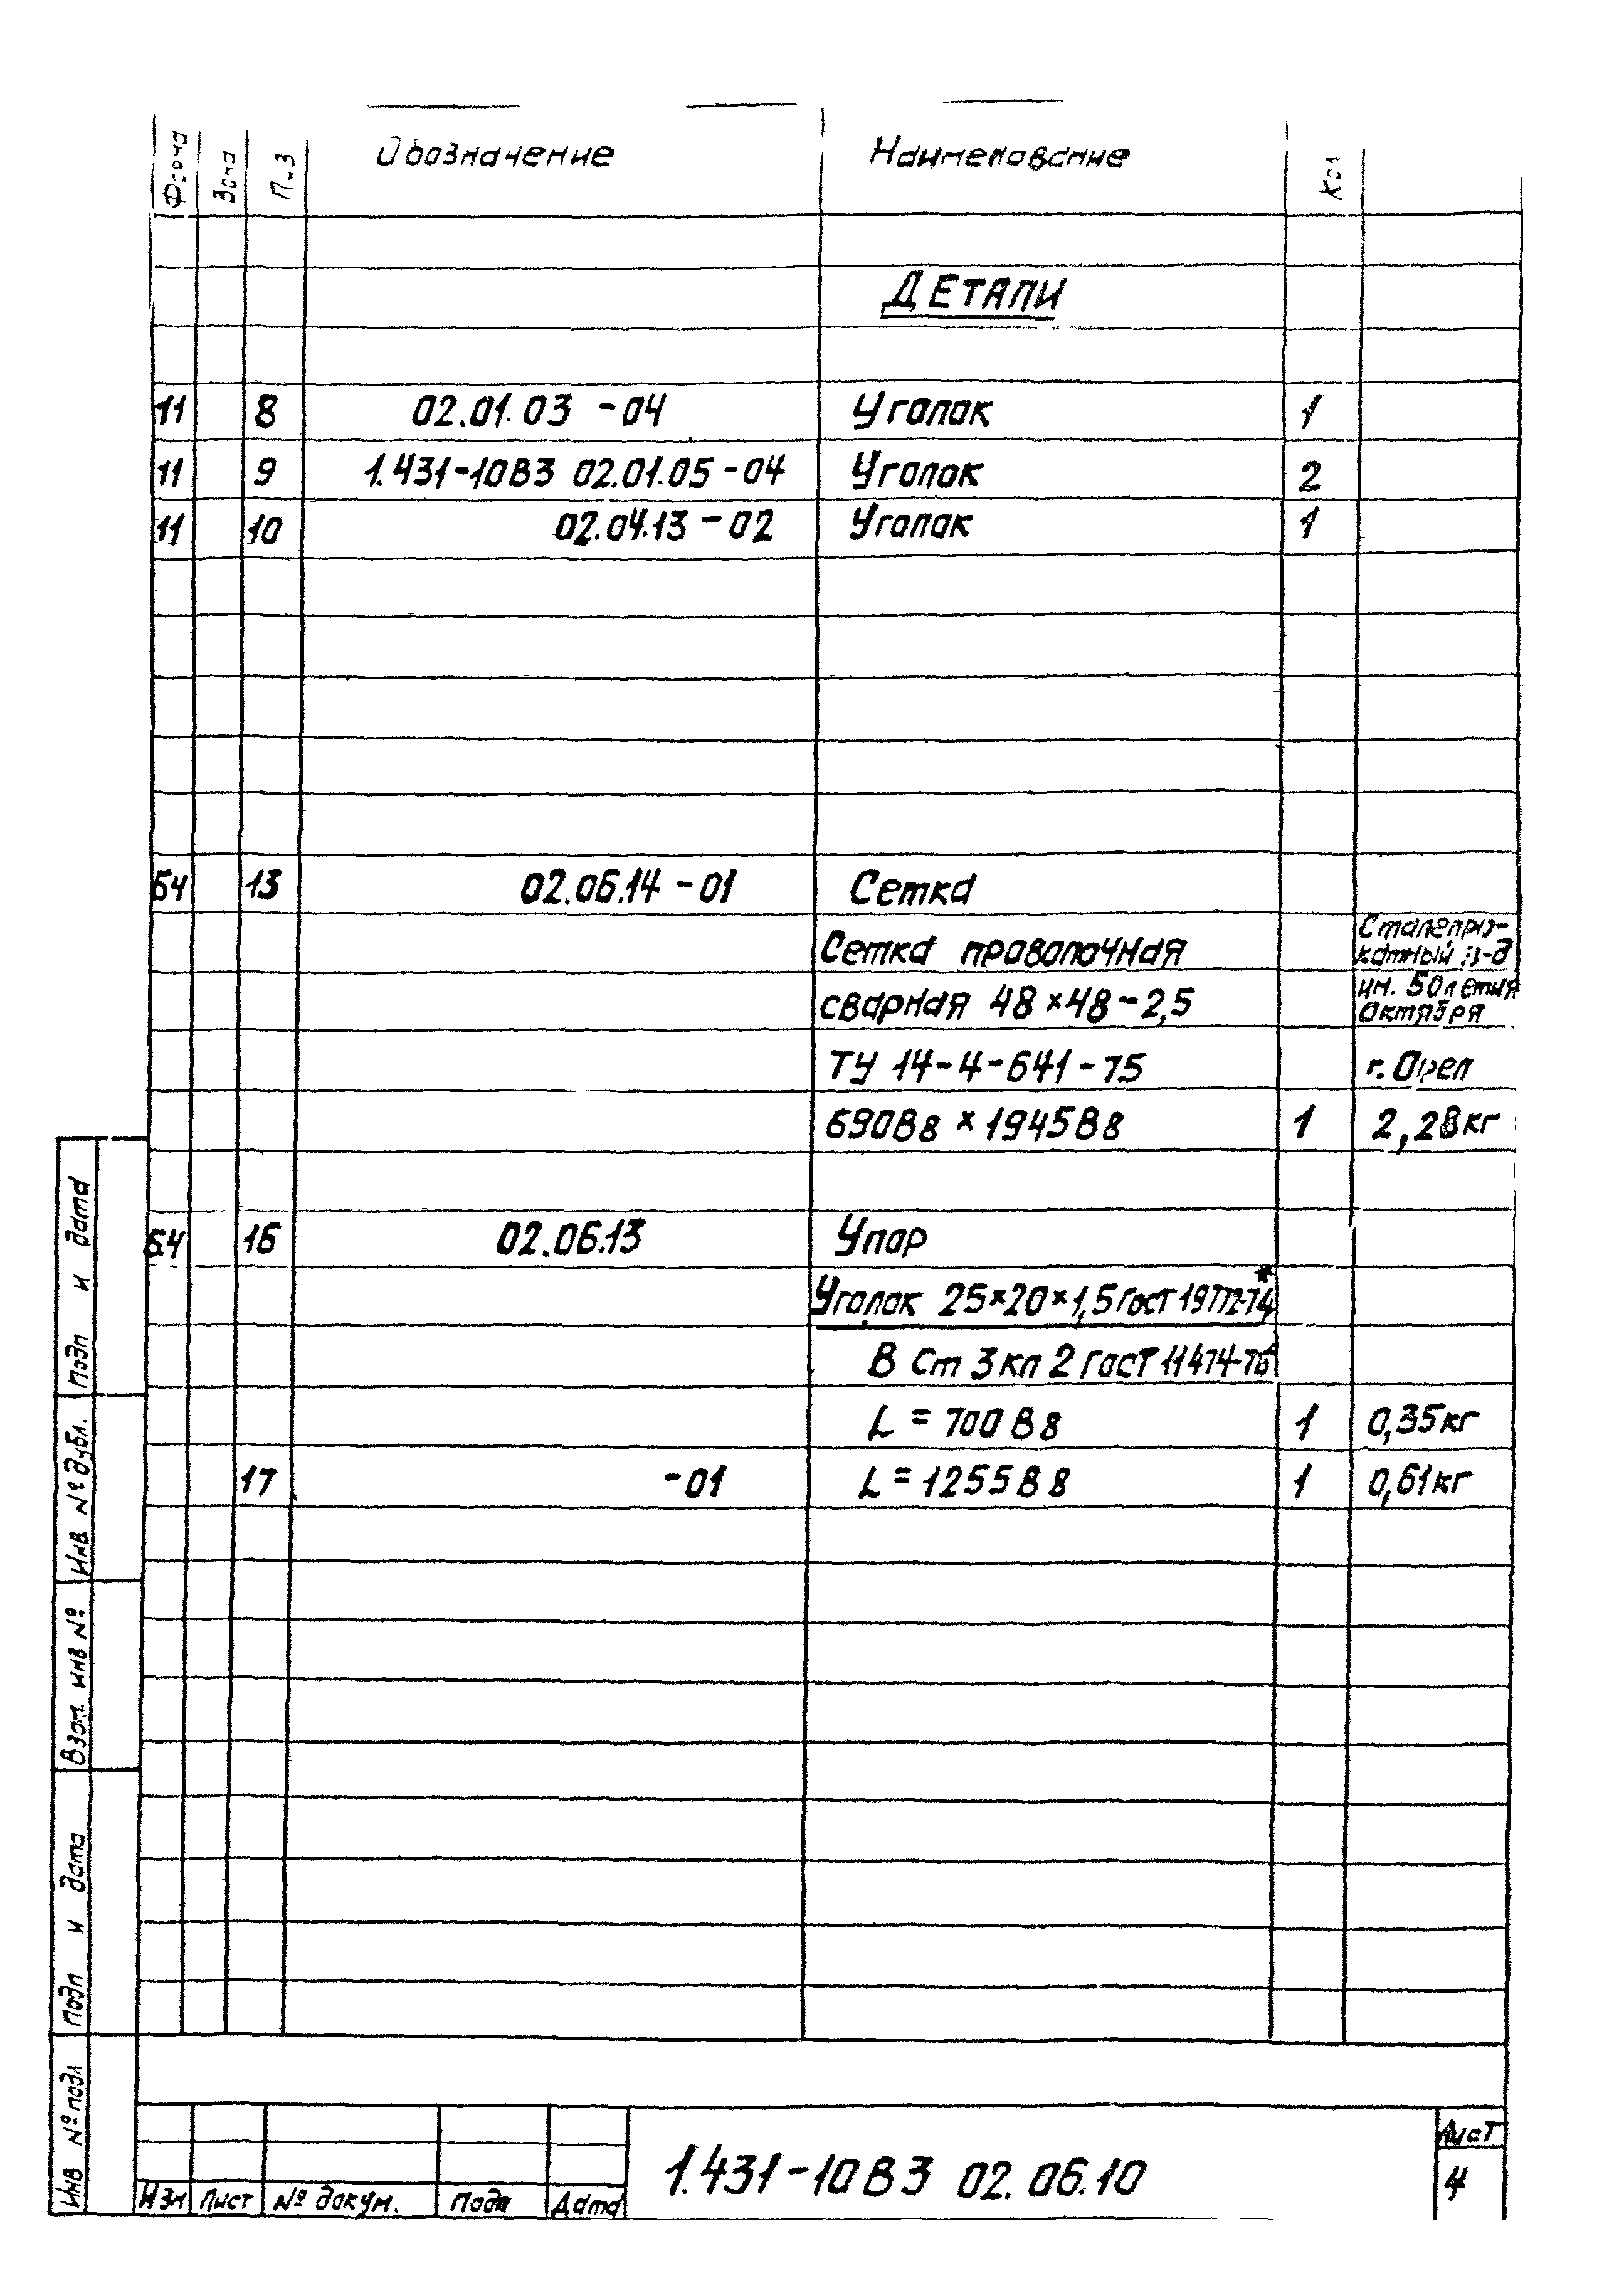 Форма Зона Поз Обозначение Наименование Кол
ДЕТАЛИ
11 8 02.01.03 -04 Уголок 1
11 9 1.431-10В3 02.01.05 -04 Уголок 2
11 10 02.04.13 -02 Уголок 1
БЧ 13 02.06.14 -01 Сетка
Сетка проволочная
сварная 48×48-2,5
ТУ 14-4-641-75
690В8 × 1945В8 1
Сталепро-
катный з-д
им. 50летия
Октября
г. Орел
2,28кг
БЧ 16 02.06.13 Упор
Уголок 25×20×1,5 ГОСТ 19772-74*
В Ст 3 кп 2 ГОСТ 11474-76
L = 700 В8 1 0,35кг
17 -01 L = 1255В8 1 0,61кг
Подп и дата
Инв № дубл.
Взам. инв №
Подп и дата
Инв № подл
Изм Лист № докум. Подп Дата
1.431-10В3 02.06.10
Лист
4